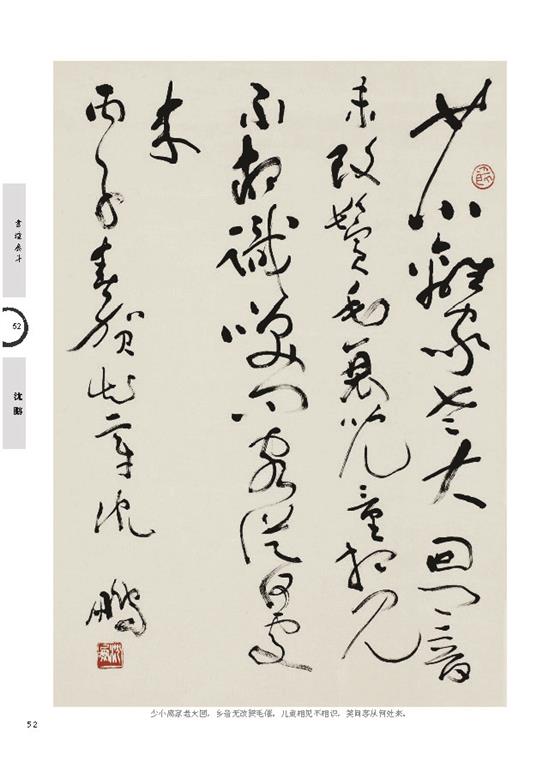 少小離家老大回乡音
未改鬢毛衰兒童相見
不相識咲问客從何處
来
丙子春賀知章沈鵬
书坛泰斗
52
沈鹏
少小离家老大回，乡音无改鬓毛催。儿童相见不相识，笑问客从何处来。
52